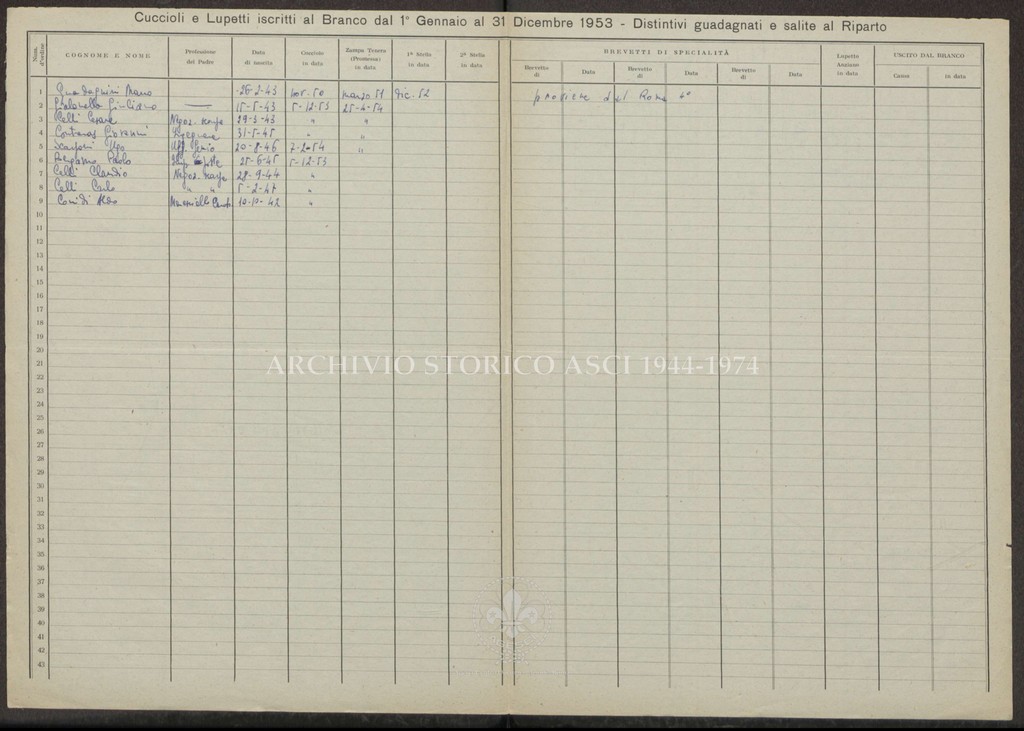 Cuccioli e Lupetti iscritti al Branco dal 1° Gennaio al 31 Dicembre 1953 - Distintivi guadagnati e salite al Riparto
Num. d'ordine COGNOME E NOME Professione del Padre Data di nascita Cucciolo in data Zampa Tenera (Promessa) in data 1ª Stella in data 2ª Stella in data BREVETTI DI SPECIALITÀ Lupetto Anziano in data USCITO DAL BRANCO
Brevetto di Data Brevetto di Data Brevetto di Data Causa in data
1 26-2-43 marzo 51 dic. 52 proviene dal Roma
2 15-5-43 5-12-53 25-4-54
3 Celli Cesare Negoz. 29-3-43 " "
4 Giovanni 31-5-45 " "
5 Scarponi Ugo Uff. Genio 20-8-46 7-2-54 "
6 Bergamo Paolo 25-6-45 5-12-53
7 Celli Claudio Negoz. 28-9-44 "
8 Celli Carlo " " 5-2-47 "
9 Aldo 10-10-42 "
10
11
12
13
14
15
16
17
18
19
20
21
ARCHIVIO STORICO ASCI 1944-1974
22
23
24
25
26
27
28
29
30
31
32
33
34
35
36
37
38
39
40
41
42
43